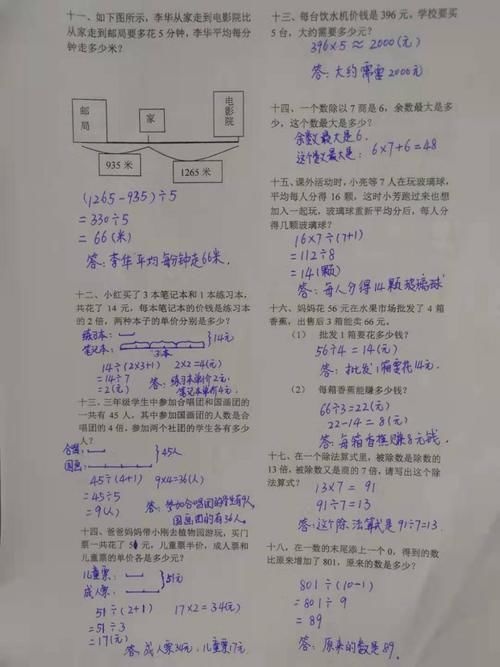 十一、如下图所示，李华从家走到电影院比
从家走到邮局要多花5分钟，李华平均每分
钟走多少米？
邮局
家
电影院
935 米
1265 米
(1265-935)÷5
=330÷5
=66(米)
答：李华平均每分钟走66米.
十二、小红买了3本笔记本和1本练习本，
共花了14元，每本笔记本的价钱是练习本
的2倍，两种本子的单价分别是多少？
练习本：
笔记本：
14元
3本
14÷(2×3+1) 2×2=4(元)
=14÷7
=2(元)
答：练习本单价2元，
笔记本单价4元.
十三、三年级学生中参加合唱团和国画团的
一共有45人，其中参加国画团的人数是合
唱团的4倍，参加两个社团的学生各有多少
人？
合唱：
国画：
45人
45÷(4+1) 9×4=36(人)
=45÷5
=9(人)
答：参加合唱团的学生有9人，
国画团的有36人.
十四、爸爸妈妈带小刚去植物园游玩，买门
票一共花了51元，儿童票半价，成人票和
儿童票的单价各是多少元？
儿童票：
成人票：
51元
51÷(2+1) 17×2=34(元)
=51÷3
=17(元)
答：成人票34元，儿童票17元.
十三、每台饮水机价钱是396元，学校要买
5台，大约需要多少钱？
396×5≈2000(元)
答：大约需要2000元
十四、一个数除以7商是6，余数最大是多
少，这个数最大是多少？
余数最大是6.
这个数最大是：6×7+6=48
十五、课外活动时，小亮等7人在玩玻璃球，
平均每人分得16颗，这时小芳跑过来也想
加入一起玩，玻璃球重新平均分后，每人分
得几颗玻璃球？
16×7÷(7+1)
=112÷8
=14(颗)
答：每人分得14颗玻璃球
十六、妈妈花56元在水果市场批发了4箱
香蕉，出售后3箱能卖66元。
（1） 批发1箱要花多少钱？
56÷4=14(元)
答：批发1箱要花14元.
（2） 每箱香蕉能赚多少钱？
66÷3=22(元)
22-14=8(元)
答：每箱香蕉赚8元钱.
十七、在一个除法算式里，被除数是除数的
13倍，被除数又是商的7倍，请写出这个除
法算式？
13×7=91
91÷7=13
答：这个除法算式是91÷7=13.
十八、在一数的末尾添上一个0，得到的数
比原来增加了801，原来的数是多少？
801÷(10-1)
=801÷9
=89
答：原来的数是89.